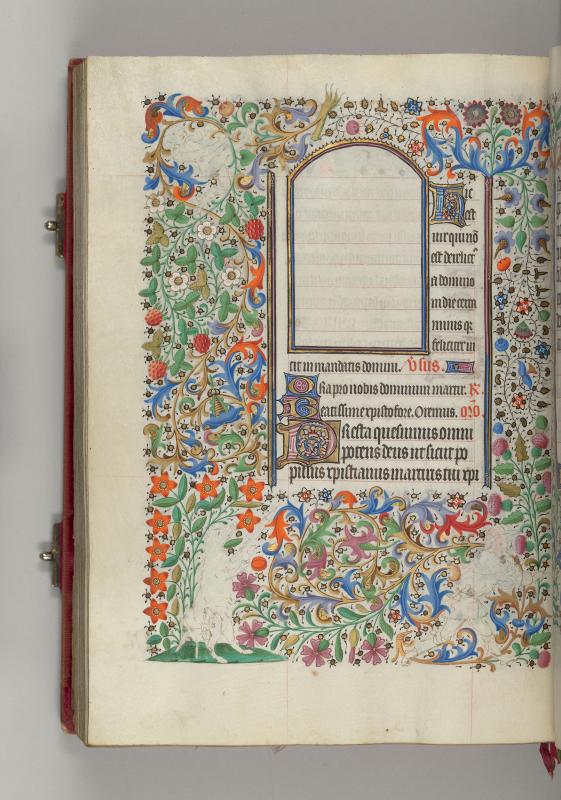 Hic
est
vir qui nō
est derelict9
a domino
in die certa
minis qz
feliciter in
cit in mandatis domini. V̄sus.
Ora pro nobis dominum martir. R̄.
Beatissime xpistofore. Oremus. orō
Presta quesumus omni
potens deus ut sicut po
pulus xpistianus martiris tui xpi